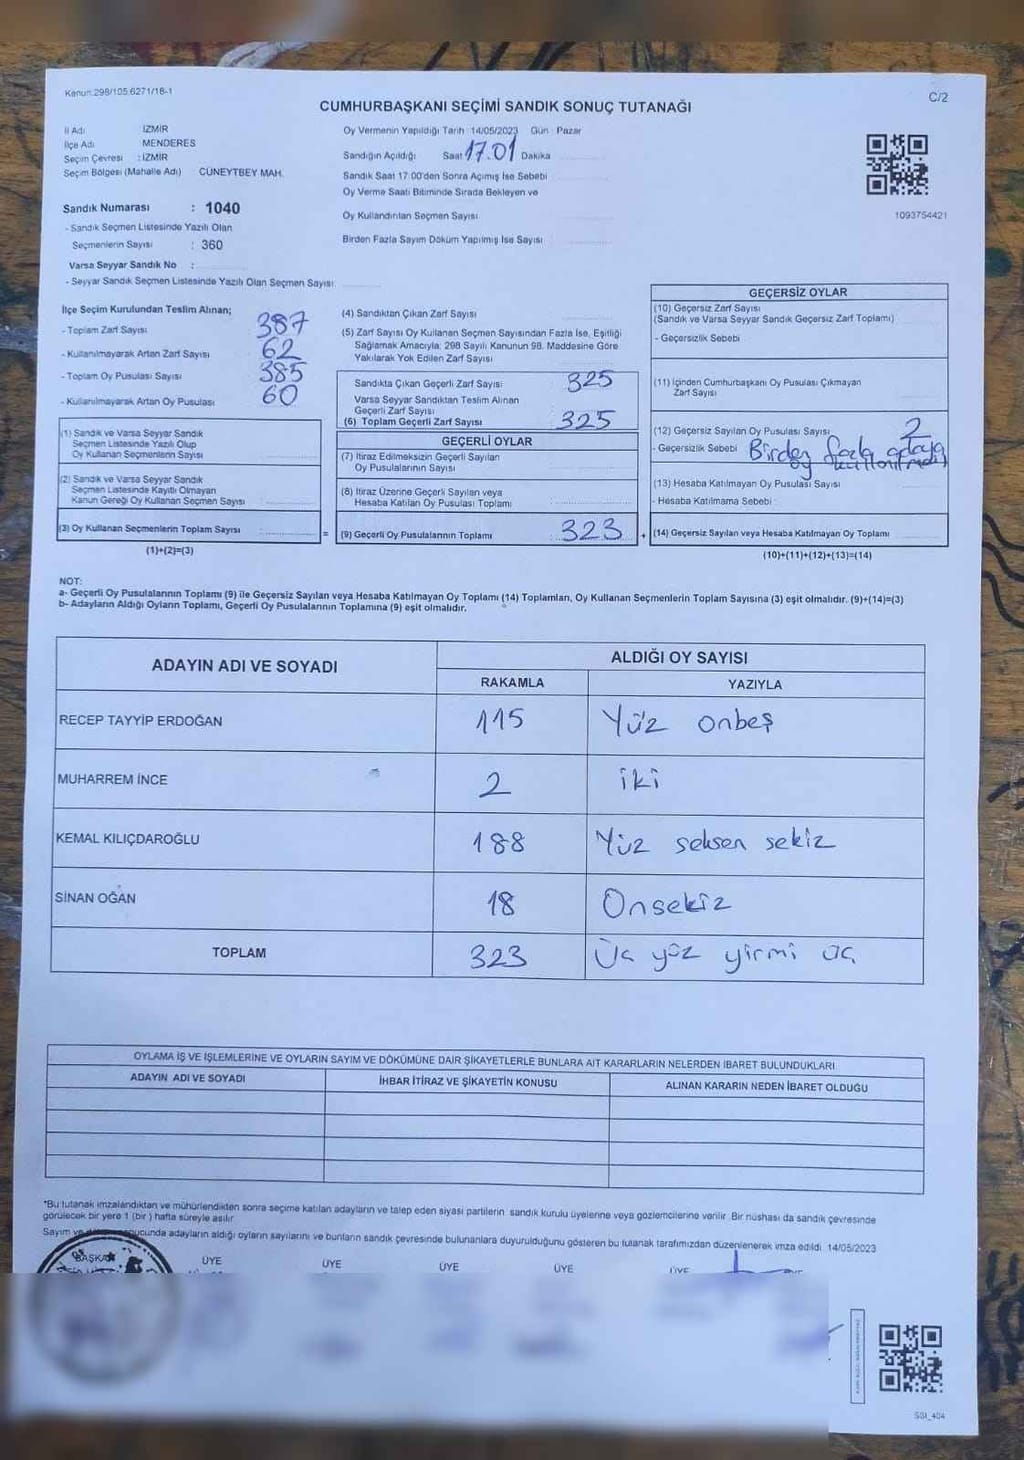 Kanun:298/105 6271/18-1
C/2
CUMHURBAŞKANI SEÇİMİ SANDIK SONUÇ TUTANAĞI
İl Adı İZMİR
İlçe Adı MENDERES
Seçim Çevresi : İZMİR
Seçim Bölgesi (Mahalle Adı) CÜNEYTBEY MAH.
Sandık Numarası : 1040
- Sandık Seçmen Listesinde Yazılı Olan
Seçmenlerin Sayısı : 360
Varsa Seyyar Sandık No :
- Seyyar Sandık Seçmen Listesinde Yazılı Olan Seçmen Sayısı:
Oy Vermenin Yapıldığı Tarih 14/05/2023 Gün Pazar
Sandığın Açıldığı Saat 17.01 Dakika
Sandık Saat 17:00'den Sonra Açılmış İse Sebebi
Oy Verme Saati Bitiminde Sırada Bekleyen ve
Oy Kullandırılan Seçmen Sayısı
Birden Fazla Sayım Döküm Yapılmış İse Sayısı
1093754421
İlçe Seçim Kurulundan Teslim Alınan;
- Toplam Zarf Sayısı 387
- Kullanılmayarak Artan Zarf Sayısı 62
- Toplam Oy Pusulası Sayısı 385
- Kullanılmayarak Artan Oy Pusulası 60
(1) Sandık ve Varsa Seyyar Sandık
Seçmen Listesinde Yazılı Olup
Oy Kullanan Seçmenlerin Sayısı
(2) Sandık ve Varsa Seyyar Sandık
Seçmen Listesinde Kayıtlı Olmayan
Kanun Gereği Oy Kullanan Seçmen Sayısı
(3) Oy Kullanan Seçmenlerin Toplam Sayısı
=
(1)+(2)=(3)
(4) Sandıktan Çıkan Zarf Sayısı
(5) Zarf Sayısı Oy Kullanan Seçmen Sayısından Fazla İse, Eşitliği
Sağlamak Amacıyla; 298 Sayılı Kanunun 98. Maddesine Göre
Yakılarak Yok Edilen Zarf Sayısı
Sandıkta Çıkan Geçerli Zarf Sayısı 325
Varsa Seyyar Sandıktan Teslim Alınan
Geçerli Zarf Sayısı
(6) Toplam Geçerli Zarf Sayısı 325
GEÇERLİ OYLAR
(7) İtiraz Edilmeksizin Geçerli Sayılan
Oy Pusulalarının Sayısı
(8) İtiraz Üzerine Geçerli Sayılan veya
Hesaba Katılan Oy Pusulası Toplamı
(9) Geçerli Oy Pusulalarının Toplamı 323
+
GEÇERSİZ OYLAR
(10) Geçersiz Zarf Sayısı
(Sandık ve Varsa Seyyar Sandık Geçersiz Zarf Toplamı)
- Geçersizlik Sebebi
(11) İçinden Cumhurbaşkanı Oy Pusulası Çıkmayan
Zarf Sayısı
(12) Geçersiz Sayılan Oy Pusulası Sayısı 2
- Geçersizlik Sebebi Birden fazla adaya
kullanılmadı
(13) Hesaba Katılmayan Oy Pusulası Sayısı
- Hesaba Katılmama Sebebi
(14) Geçersiz Sayılan veya Hesaba Katılmayan Oy Toplamı
(10)+(11)+(12)+(13)=(14)
NOT:
a- Geçerli Oy Pusulalarının Toplamı (9) ile Geçersiz Sayılan veya Hesaba Katılmayan Oy Toplamı (14) Toplamları, Oy Kullanan Seçmenlerin Toplam Sayısına (3) eşit olmalıdır. (9)+(14)=(3)
b- Adayların Aldığı Oyların Toplamı, Geçerli Oy Pusulalarının Toplamına (9) eşit olmalıdır.
ADAYIN ADI VE SOYADI ALDIĞI OY SAYISI
RAKAMLA YAZIYLA
RECEP TAYYİP ERDOĞAN 115 Yüz onbeş
MUHARREM İNCE 2 iki
KEMAL KILIÇDAROĞLU 188 Yüz seksen sekiz
SİNAN OĞAN 18 Onsekiz
TOPLAM 323 Üç yüz yirmi üç
OYLAMA İŞ VE İŞLEMLERİNE VE OYLARIN SAYIM VE DÖKÜMÜNE DAİR ŞİKAYETLERLE BUNLARA AİT KARARLARIN NELERDEN İBARET BULUNDUKLARI
ADAYIN ADI VE SOYADI İHBAR İTİRAZ VE ŞİKAYETİN KONUSU ALINAN KARARIN NEDEN İBARET OLDUĞU
*Bu tutanak imzalandıktan ve mühürlendikten sonra seçime katılan adayların ve talep eden siyasi partilerin sandık kurulu üyelerine veya gözlemcilerine verilir. Bir nüshası da sandık çevresinde
görülecek bir yere 1 (bir) hafta süreyle asılır
Sayım ve sonucunda adayların aldığı oyların sayılarını ve bunların sandık çevresinde bulunanlara duyurulduğunu gösteren bu tutanak tarafımızdan düzenlenerek imza edildi. 14/05/2023
BAŞKAN ÜYE ÜYE ÜYE ÜYE ÜYE
SSI_404